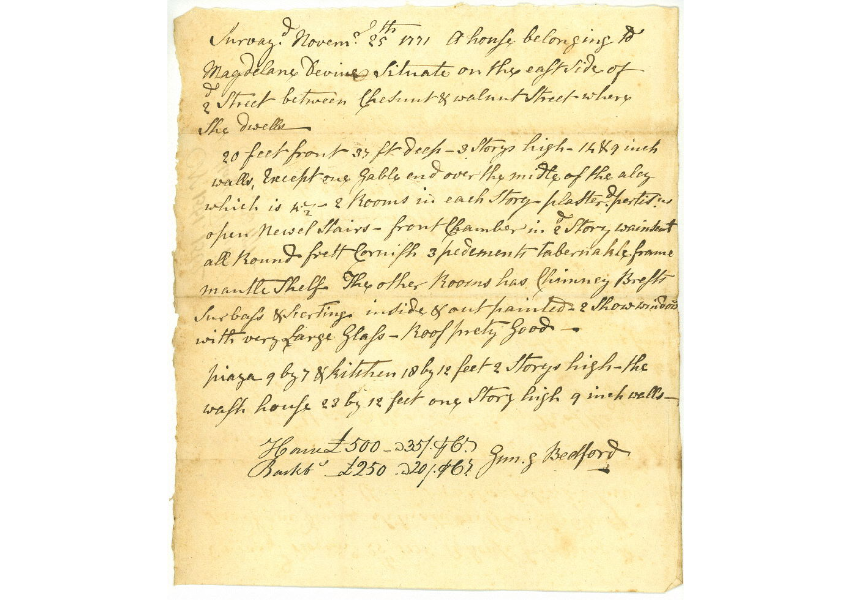 Survay.d Novem.r 25th 1771 A house belonging to
Magdelane Devine Situate on the east side of
2d Street between Chesnut & walnut Street where
She dwells —
20 feet front 37 ft deep – 3 Storys high – 14 & 9 inch
walls, Except one Gable end over the midle of the aley
which is – 2 Rooms in each Story – plaster.d
open Newel Stairs – front Chamber in 2d Story wainscut
all Round frett Cornish 3 pedements tabernakle frame
mantle Shelf The other Rooms has Chimney Brests
Surbass & skerting inside & out painted – 2 Show windows
with very Large Glass – Roof prety Good —
piaza 9 by 7 & kitchen 18 by 12 feet 2 Storys high – the
wash house 23 by 12 feet one Story high 9 inch walls –
House £500 – 35/
£250 20/ Gun.g Bedford